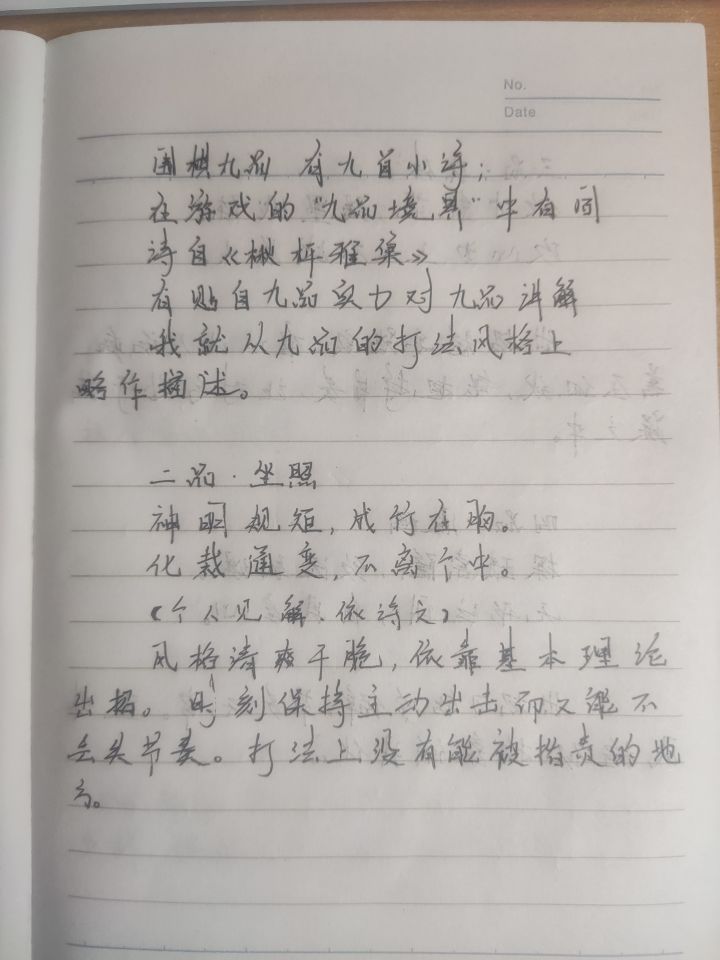 No.
Date
围棋九品 有九首小诗；
在游戏的“九品境界”中有同
诗自《楸枰雅集》
有贴自九品实力对九品讲解
我就从九品的打法风格上
略作描述。
二品·坐照
神明规矩，成竹在胸。
化裁通变，不离个中。
（个人见解，依诗文）
风格清爽干脆，依靠基本理论
出招。时刻保持主动出击而又能不
丢失节奏。打法上没有能被指责的地
方。